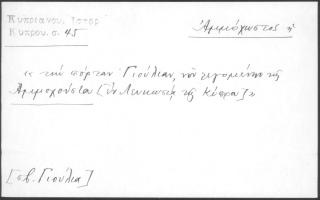 Κυπριανου, Ιστορ
Κυπρου. σ. 45
Ἀμμόχωστος ἡ
« τὴν πόρταν Γιούλιαν, τὴν λεγομένην τῆς
Ἀμμοχούστου [ἐν Λευκωσίᾳ τῆς Κύπρου] »
[σβ. Γιούλια]